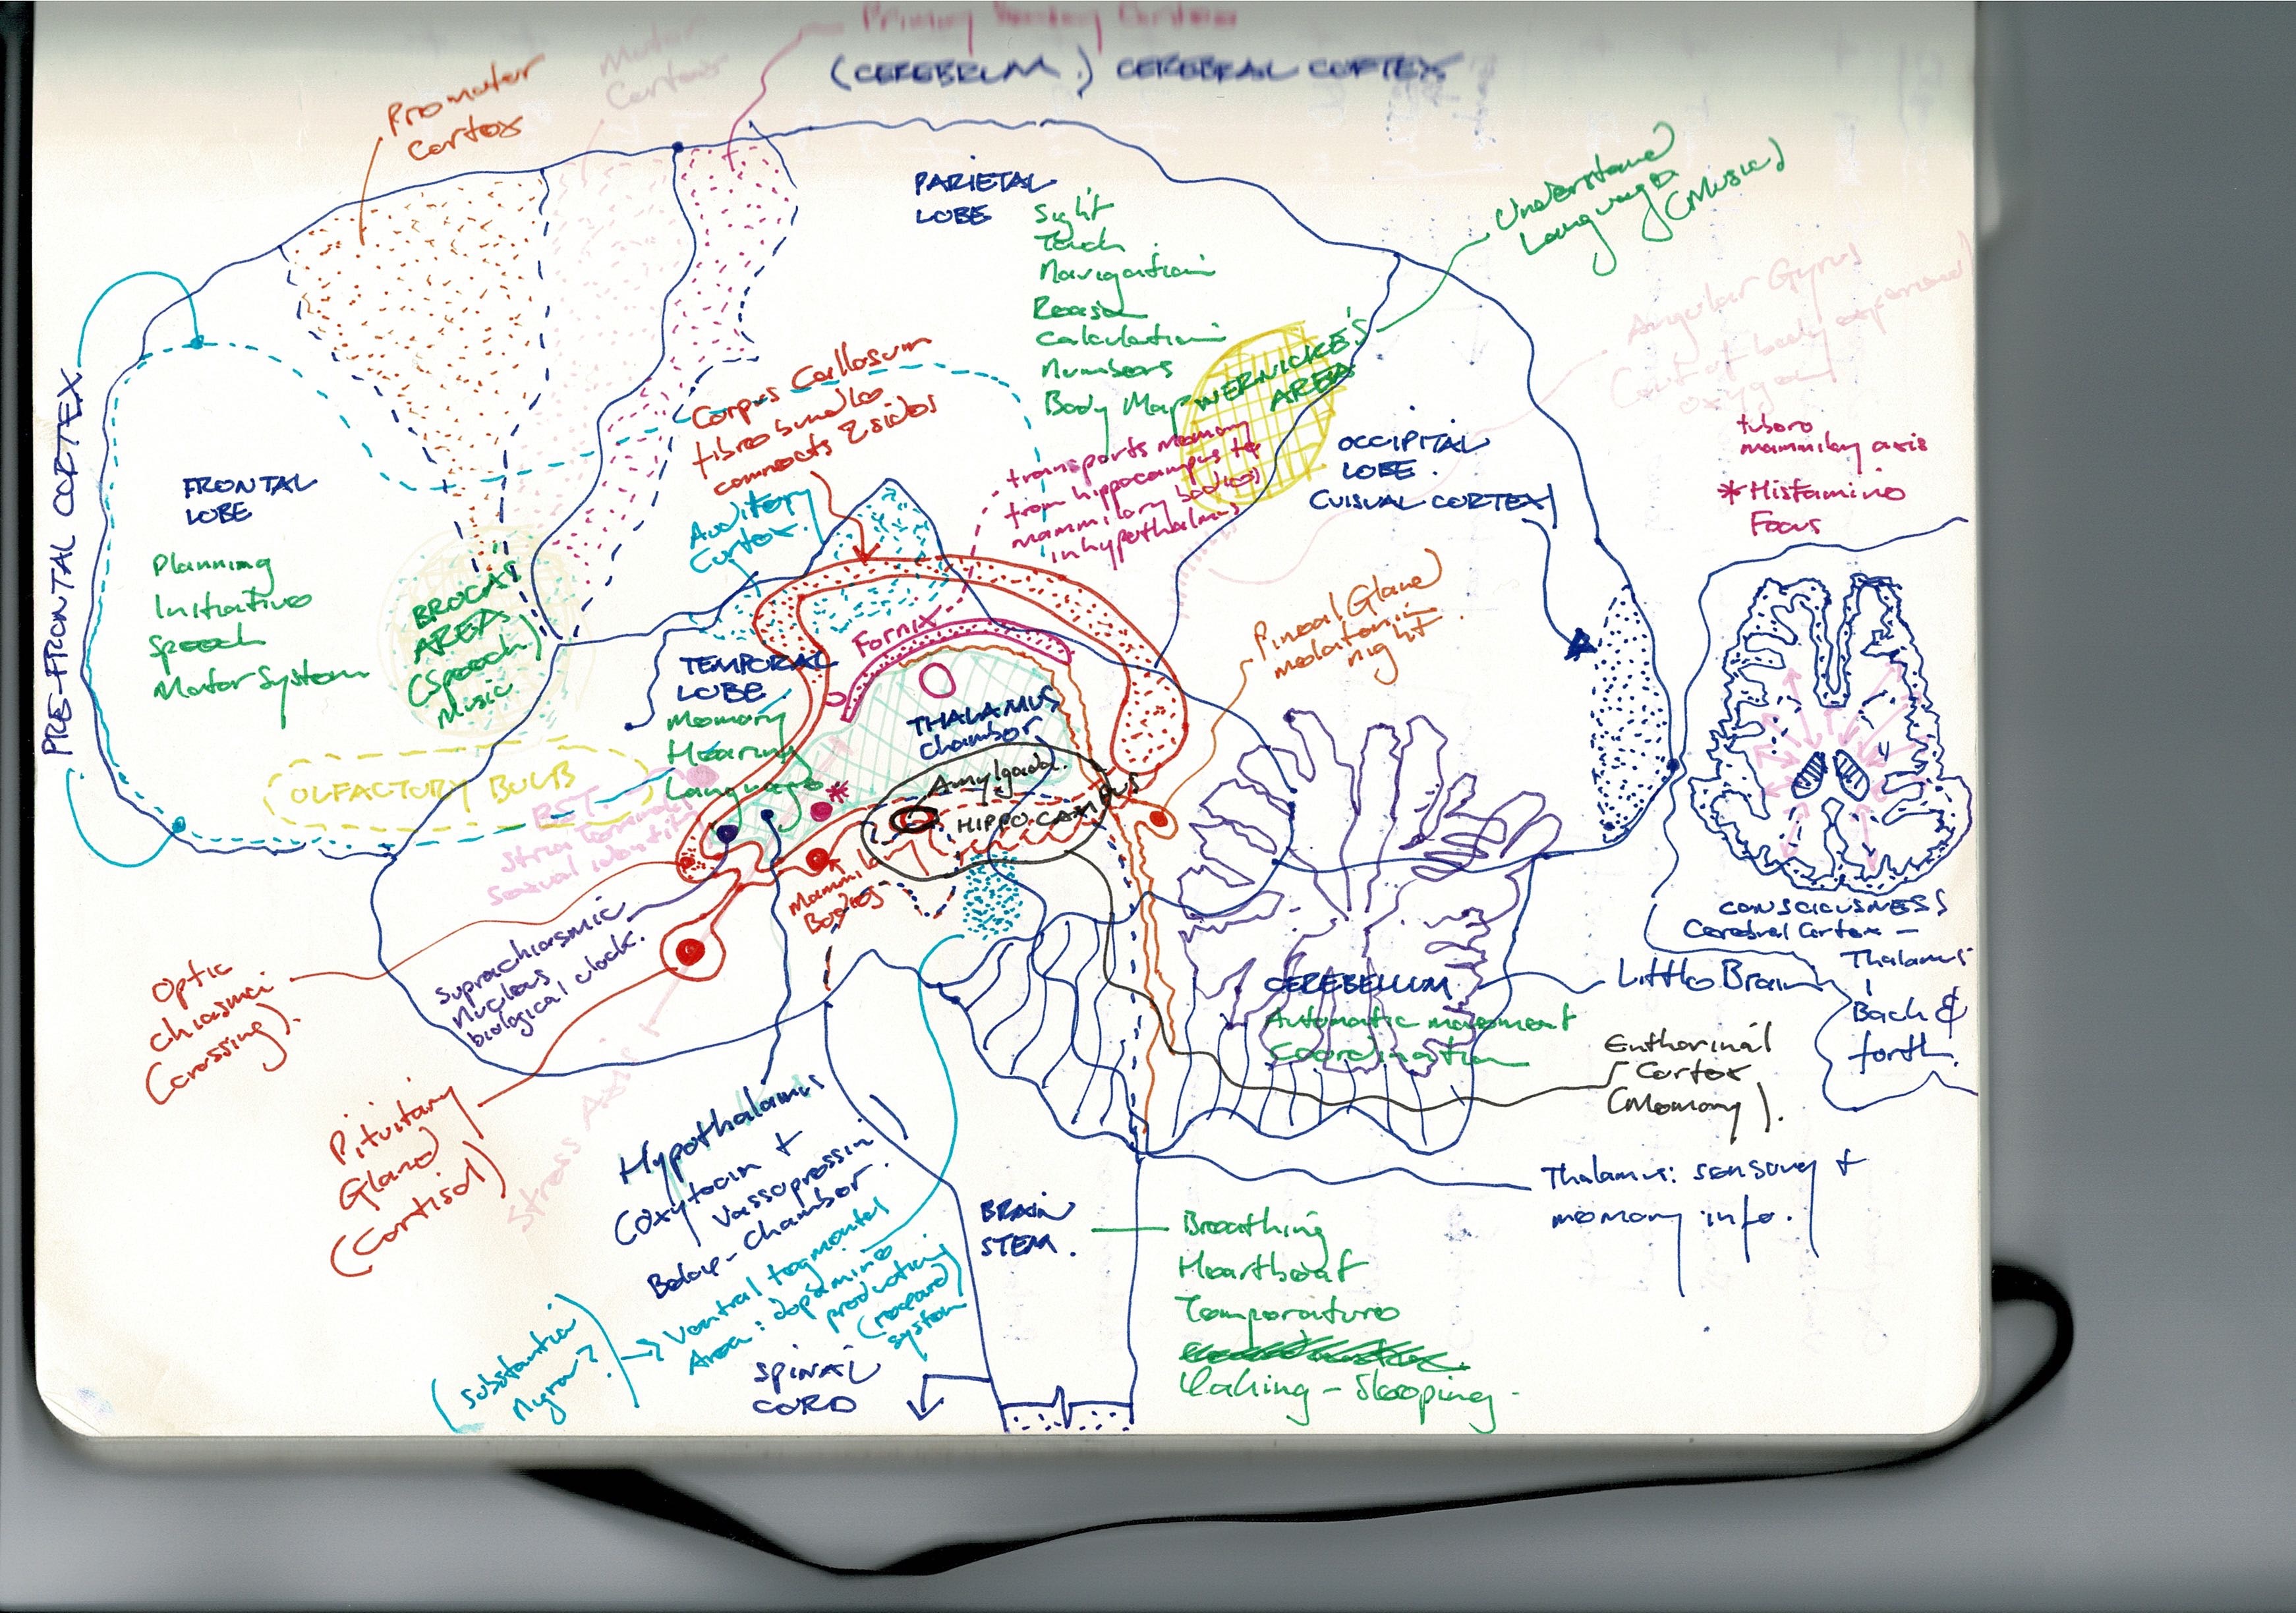 (CEREBRUM.) CEREBRAL CORTEX
Motor
Cortex
Premotor
Cortex
PRE-FRONTAL CORTEX
FRONTAL
LOBE
Planning
Initiative
Speech
Motor System
BROCA'S
AREA
(Speech)
Music
OLFACTORY BULB
BST.
stria terminalis
sexual identity
PARIETAL
LOBE
Sight
Touch
Navigation
Reason
Calculation
Numbers
Body Map
WERNICKE'S
AREA
Understand
Language
(Music)
Angular Gyrus
Corpus Callosum
fibre bundle
connects 2 sides
Auditory
Cortex.
transports memory
from hippocampus to
mammilary bodies
in hypothalmus
OCCIPITAL
LOBE.
(VISUAL CORTEX)
tubero
mammilary axis
* Histamine
Focus
Fornix
TEMPORAL
LOBE
Memory
Hearing
Language
THALAMUS
chamber
Amylgada.
HIPPOCAMPUS
Pineal Gland
melatonin
night.
Mammila
Bodies
Optic
chiasma
(crossing).
Suprachiasmic
nucleus
biological clock.
Pituitary
Gland
(Cortisol)
Stress Axis
Hypothalamus
(Oxytocin +
Vassopressin
Below - chamber.
(substantia
Nygra?)
→ Ventral tegmental
Area: dopamine
production
(reward)
system
SPINAL
CORD
BRAIN
STEM.
Breathing
Heartbeat
Temperature
Waking - Sleeping -
CEREBELLUM
Automatic movement
Coordination
Little Brain
CONSCIOUSNESS
Cerebral Cortex -
Thalamus
Back &
forth.
Enthorinal
Cortex
(Memory).
Thalamus: sensory +
memory info.